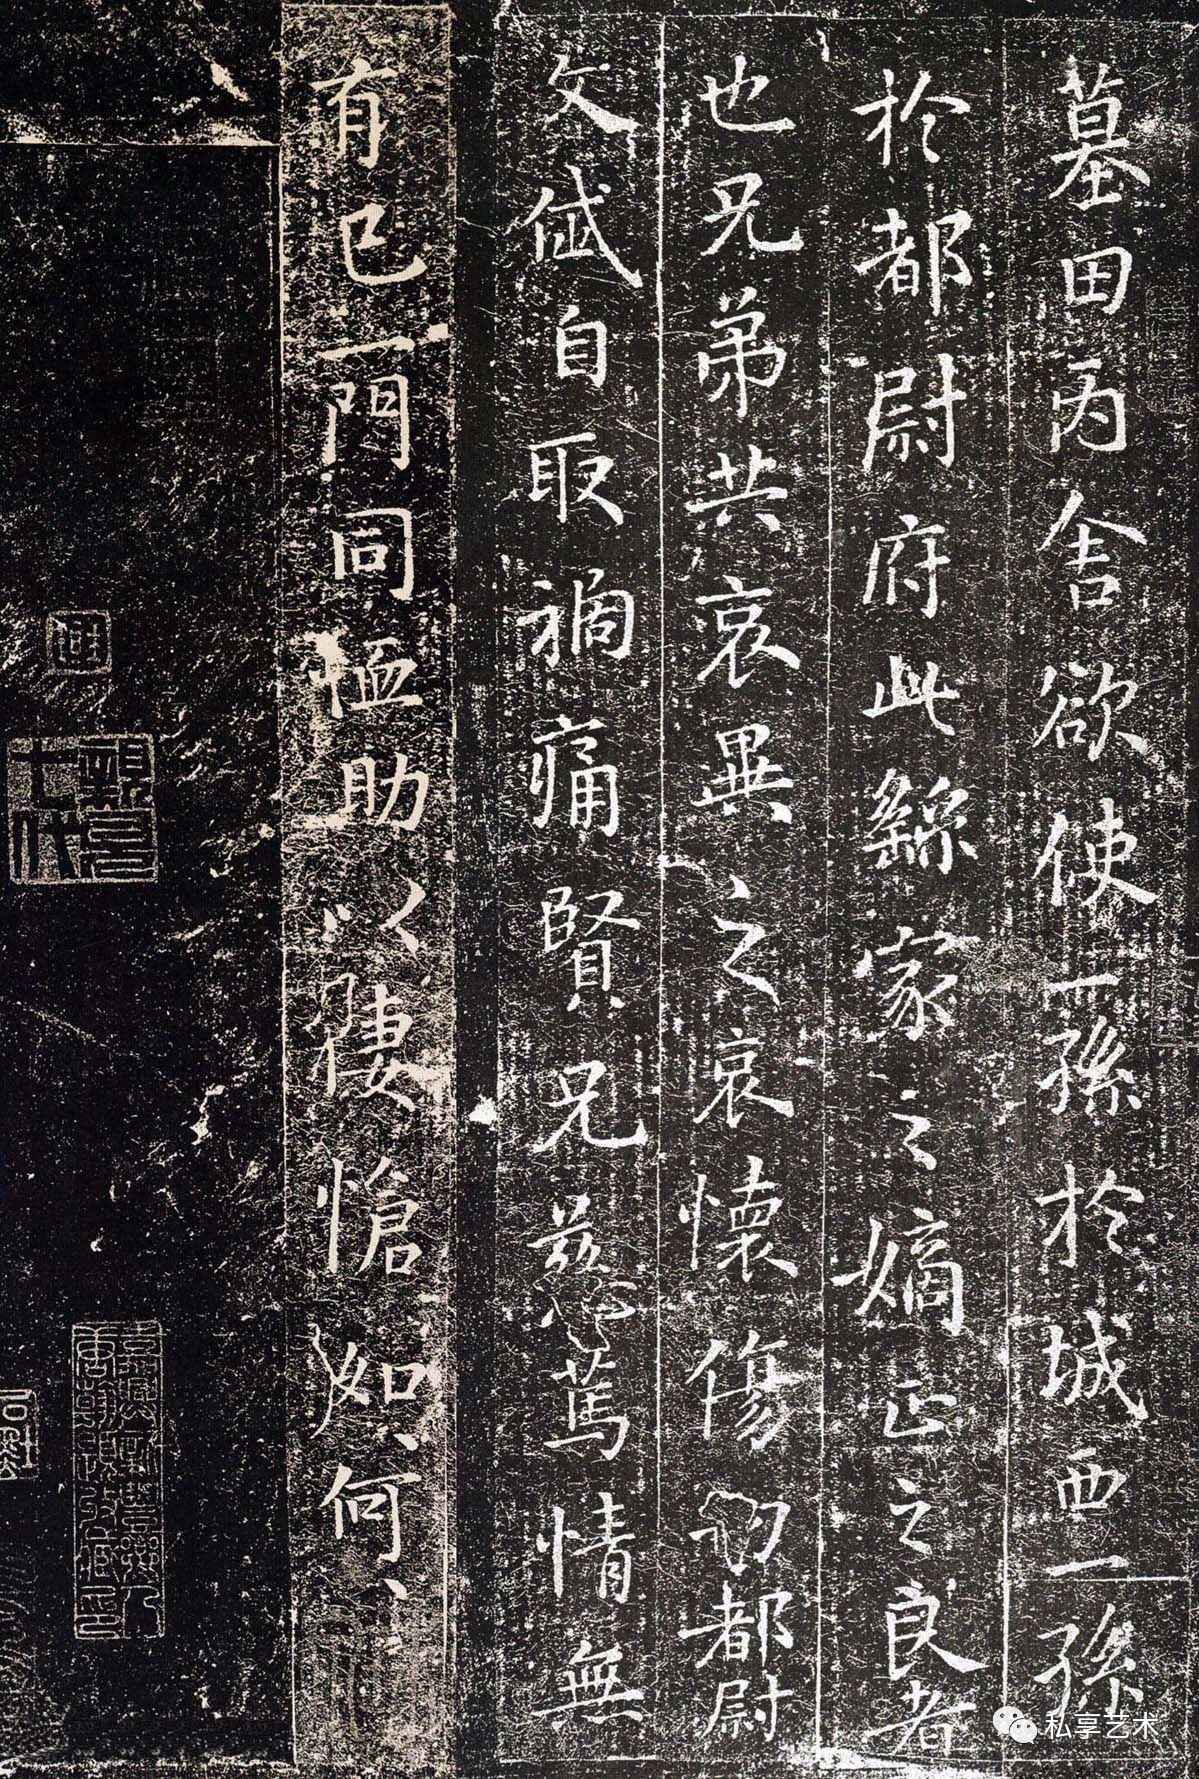 墓田丙舍欲使一孫於城西一孫
於都尉府此繇家之嫡正之良者
也兄弟共哀異之哀懷傷切都尉
文岱自取禍痛賢兄慈篤情無
有已一門同恤助以悽愴如何如何
私享艺术